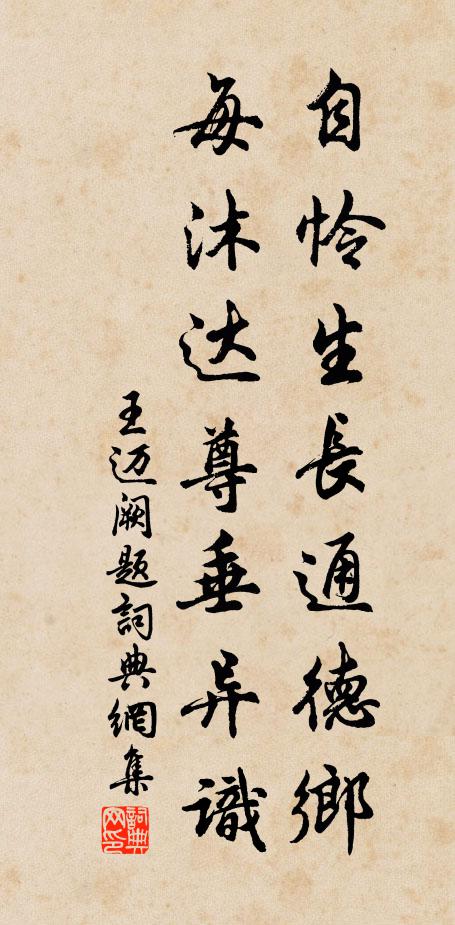 自怜生長通德鄉
每沐达尊垂异識
王迈阙题詞典網集
詞典網印